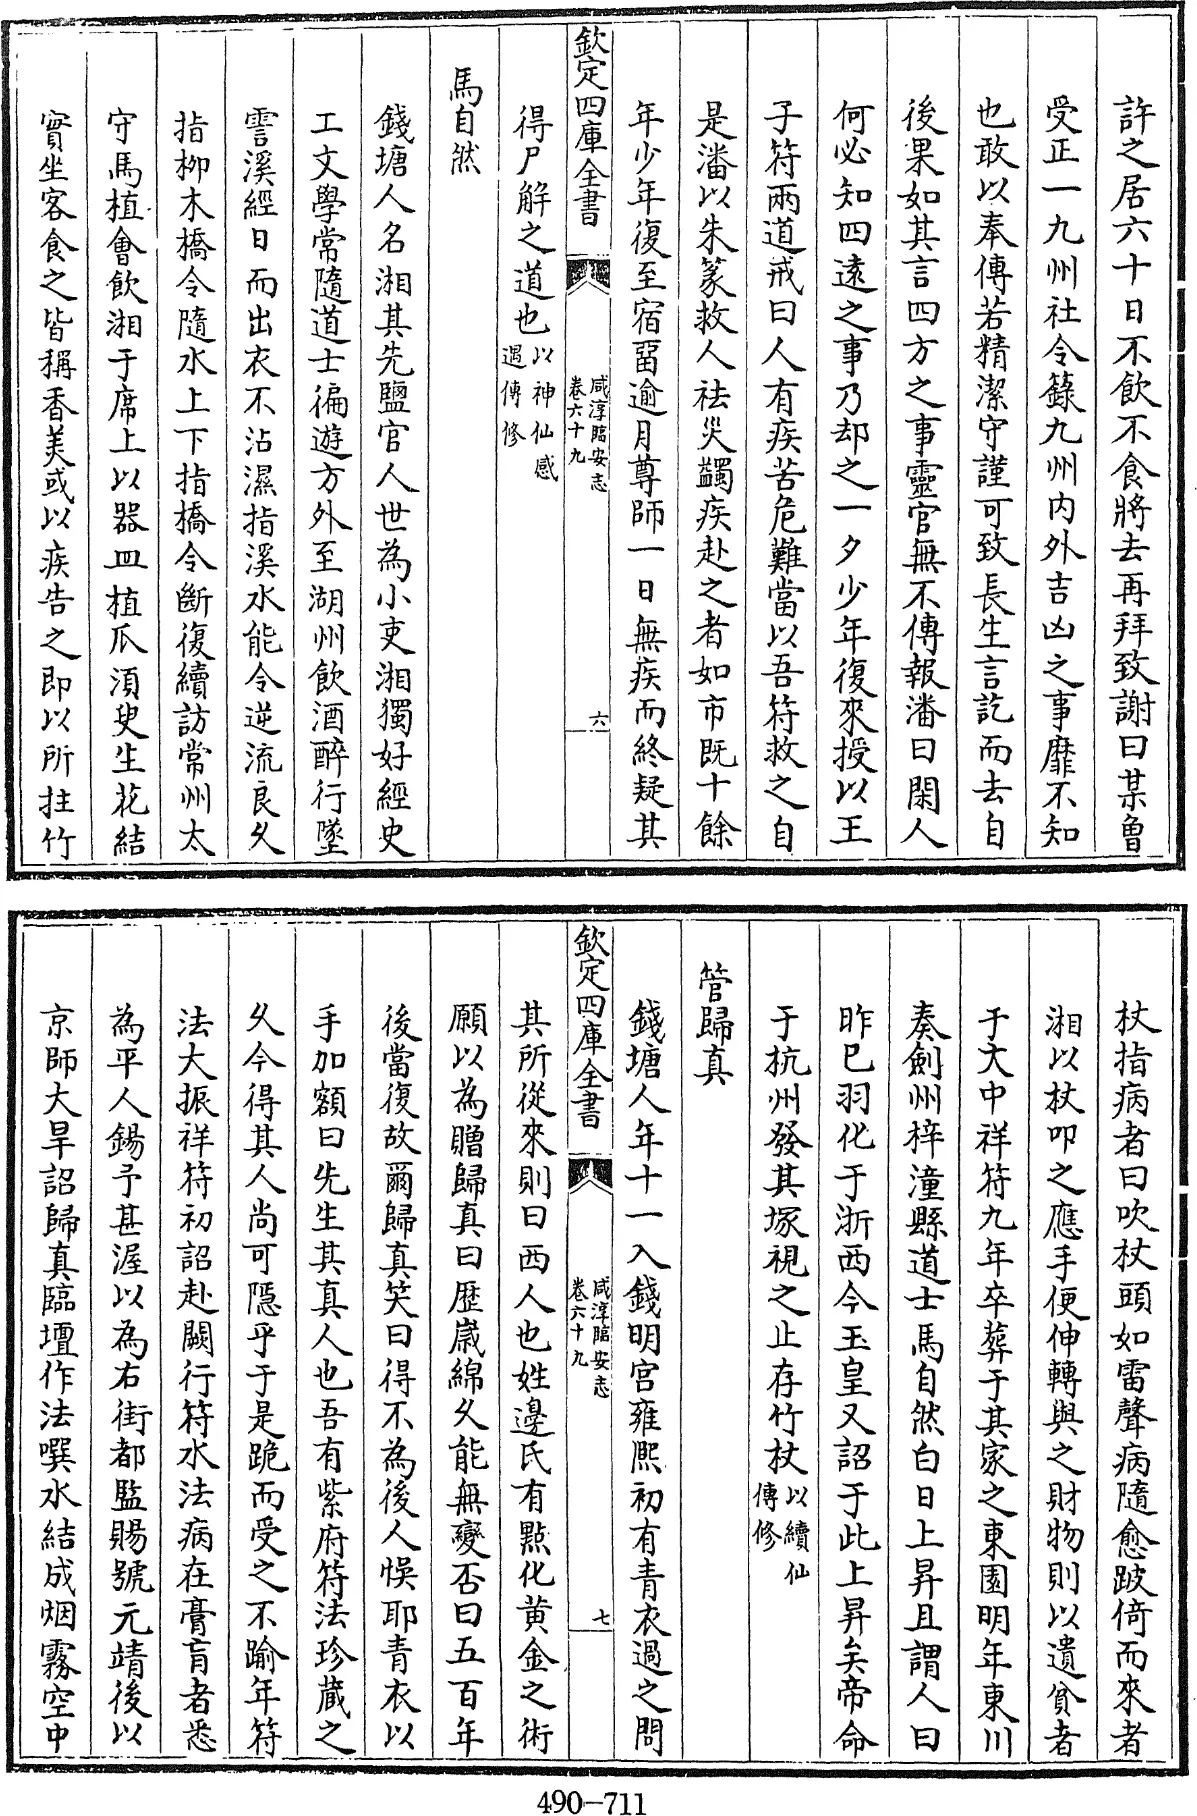 許之居六十日不飲不食將去再拜致謝曰某魯
受正一九州社令籙九州内外吉凶之事靡不知
也敢以奉傳若精潔守謹可致長生言訖而去自
後果如其言四方之事靈官無不傳報潘曰閑人
何必知四遠之事乃却之一夕少年復來授以王
子符兩道戒曰人有疾苦危難當以吾符救之自
是潘以朱篆救人祛災蠲疾赴之者如市既十餘
年少年復至宿留逾月尊師一日無疾而終疑其
欽定四庫全書
咸淳臨安志
卷六十九
六
得尸解之道也以神仙感
遇傳修
馬自然
錢塘人名湘其先鹽官人世為小吏湘獨好經史
工文學常隨道士徧遊方外至湖州飲酒醉行墜
霅溪經日而出衣不沾濕指溪水能令逆流良久
指柳木橋令隨水上下指橋令斷復續訪常州太
守馬植會飲湘于席上以器皿植瓜須臾生花結
實坐客食之皆稱香美或以疾告之即以所拄竹
杖指病者曰吹杖頭如雷聲病隨愈跛倚而來者
湘以杖叩之應手便伸轉與之財物則以遺貧者
于大中祥符九年卒葬于其家之東園明年東川
奏劍州梓潼縣道士馬自然白日上昇且謂人曰
昨已羽化于浙西今玉皇又詔于此上昇矣帝命
于杭州發其塚視之止存竹杖以續仙
傳修
管歸真
錢塘人年十一入錢明宮雍熙初有青衣過之問
欽定四庫全書
咸淳臨安志
卷六十九
七
其所從來則曰西人也姓邊氏有點化黄金之術
願以為贈歸真曰歴嵗綿久能無變否曰五百年
後當復故爾歸真笑曰得不為後人悮耶青衣以
手加額曰先生其真人也吾有紫府符法珍藏之
久今得其人尚可隱乎于是跪而受之不踰年符
法大振祥符初詔赴闕行符水法病在膏肓者悉
為平人錫予甚渥以為右街都監賜號元靖後以
京師大旱詔歸真臨壇作法噀水結成烟霧空中
490-711